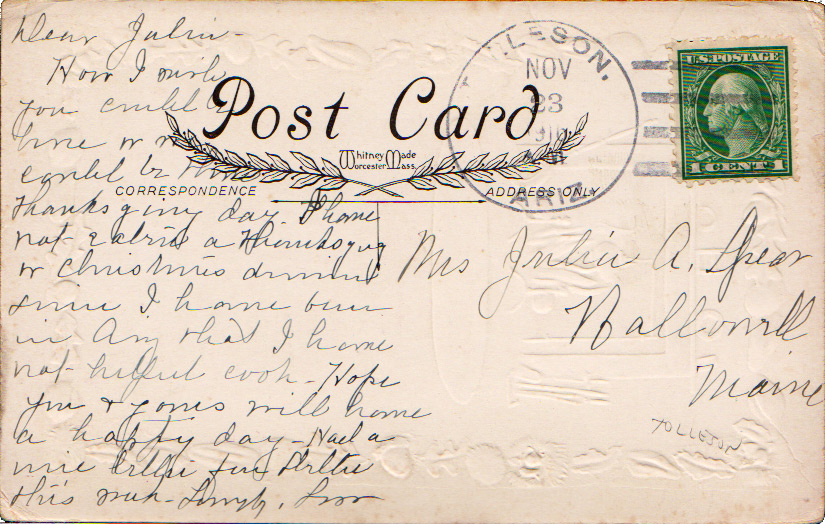 Dear Julia -
How I wish
you could
here or
could be home
Thanksgiving day. I have
not eaten a Thanksgiving
or Christmas dinner
since I have been
in Ariz that I have
not helped cook - Hope
you & yours will have
a happy day - Had a
nice letter from
this week - Lovingly,
Post Card
Whitney Made
Worcester Mass.
CORRESPONDENCE
ADDRESS ONLY
LLESON.
NOV
23
ARIZ.
U.S. POSTAGE
1 CENTS 1
Mrs Julia A. Spear
Hallowell
Maine
TOLLETON